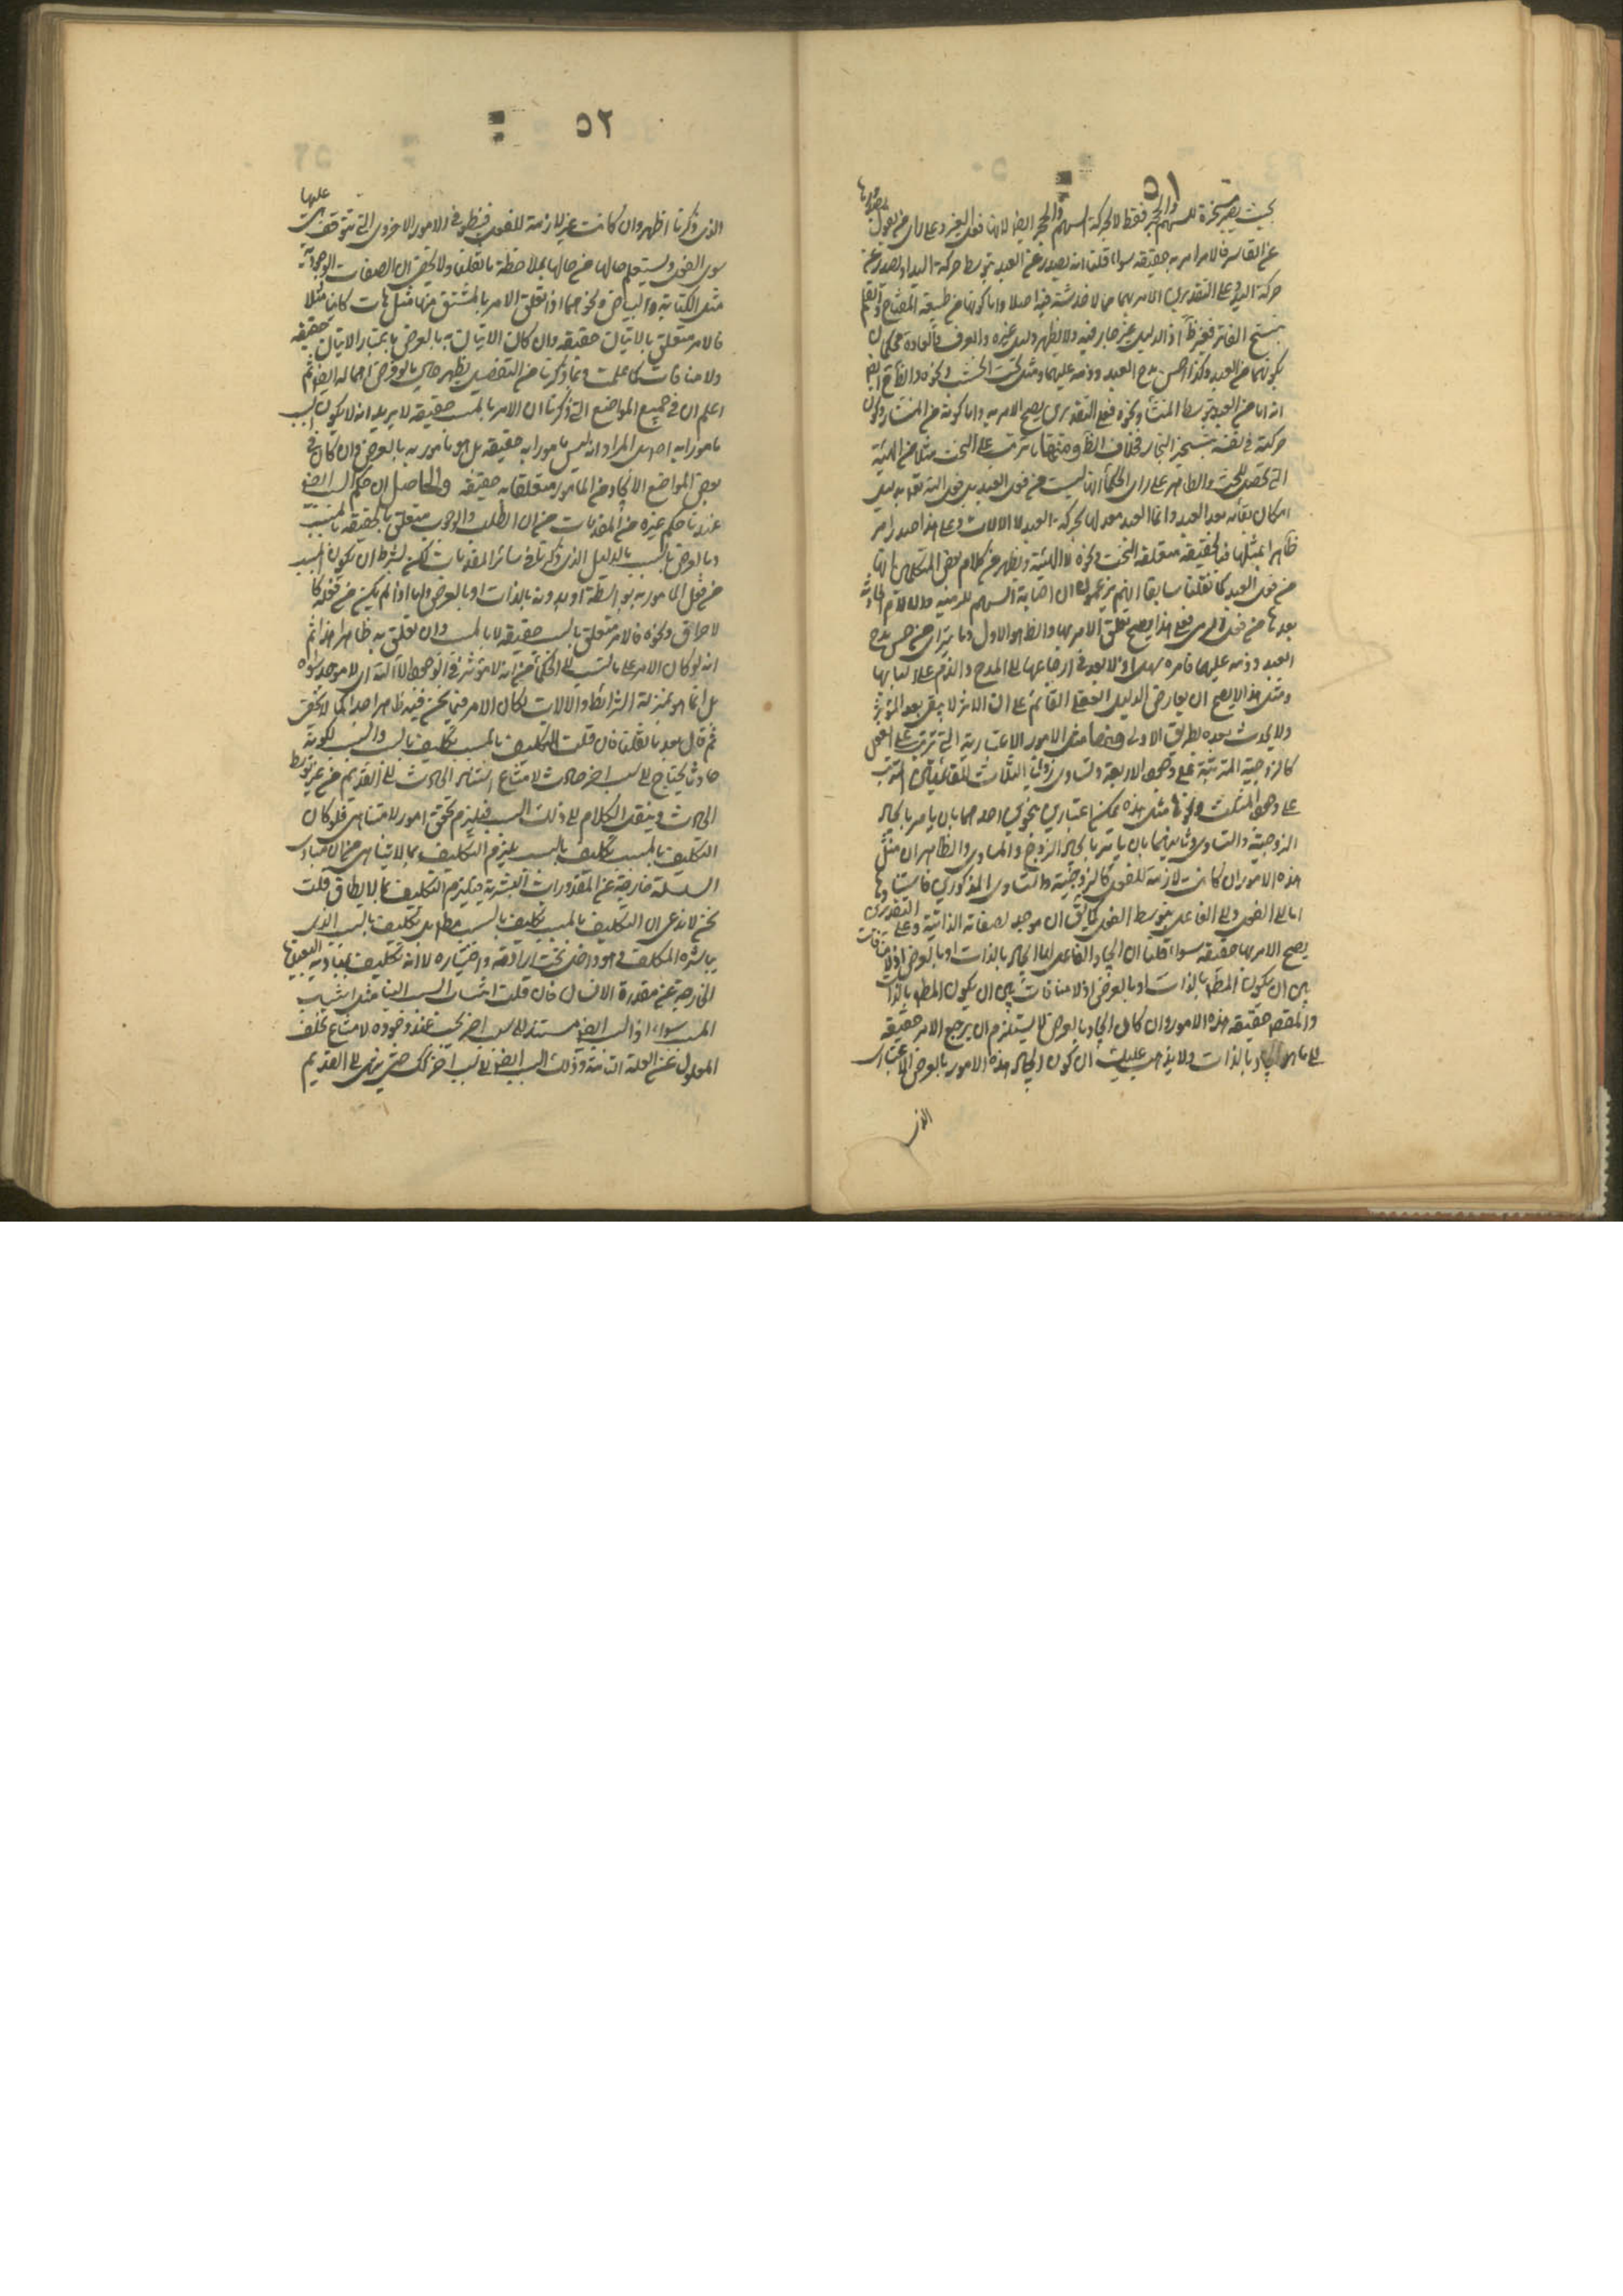 ٥١
بحيث يصير مسخرة للسهم والحجر فقط لا لحركة السهم والحجر ايضا لانها فعل الغير وعلى راى من يقول بصدورها
عن القاسر فالامر امر به حقيقة سواء قلنا انه يصدر عن العبد بتوسط حركة اليد او يصدر عن
حركة اليد وعلى التقديرين الامر بهما مما لا خدشة فيه اصلا واما كونها من طبيعة المفتاح والقلم
بتسخير القاسر فغير ظ اذ الدليل غير جار فيه ولا يظهر دليل غيره والعرف والعادة يحكمان
بكونهما من العبد وكذا حسن مدح العبد وذمه عليهما ومثل نحت الخشب ونحوه والظاهر ايضا
انه اما من العبد بتوسط المنشار ونحوه فعلى التقديرين يصح الامر به واما كونه من المنشار وكون
حركته في نفسه بتسخير النجار فخلاف الظ ومنها ما يترتب على النحت مثلا من الهيئة
التي تحصل للنحت والظاهر على راى الحكماء انها ليست من فعل العبد بل فعل الله تعالى بدليل
امكان بقائه بعد العبد وانما العبد معد لها بحركة العبد لا الالات وعلى هذا صدر امر
ظاهرا بمثلها فبالحقيقة متعلقه النحت ونحوه لا الهيئة ويظهر من كلام بعض المتكلمين انها
من فعل العبد كما نقلنا سابقا انهم يزعمون ان اصابة السهم للرمية والالام الحادثة
بعدها من فعل الرامي فعلى هذا يصح تعلق الامر بها والظ هو الاول وما يتراى من حسن مدح
العبد وذمه عليها فامره سهل اذ لا بعد في ارجاعها الى المدح والذم على اسبابها
ومثل هذا لا يصح ان يعارض الدليل العقلي القائم على ان الاثر لا يبقى بعد المؤثر
ولا يحدث بعده بطريق الاولى ومنها مثل الامور الاعتبارية التي تترتب على الفعل
كالزوجية المترتبة على وجود الاربعة وتساوى زوايا الثلاث للقائمتين المترتب
على وجود المثلث ونحوها مثل هذه يمكن اعتبارين بنحوين احدهما بان يامر بايجاد
الزوجية والتساوى وثانيهما بان يامر بايجاد الزوج والمساوى والظاهر ان مثل
هذه الامور ان كانت لازمة للفعل كالزوجية والتساوى المذكورين فاستنادها
اما الى الفعل والى الفاعل بتوسط الفعل كما يق ان موجد لصفاته الذاتية وعلى التقديرين
يصح الامر بها حقيقة سواء قلنا ان ايجاد الفاعل لها ايجاد بالذات او بالعرض اذ لا منافات
بين ان يكون المطلوب بالذات او بالعرض اذ لا منافات بين ان يكون المط بالذات
والمقصود حقيقة هذه الامور وان كان ايجاد بالعرض لا يستلزم ان يرجع الامر حقيقة
الى ما هو ايجاد بالذات ولا يذهب عليك ان كون ايجاد هذه الامور بالعرض بالاعتبار
الذى
٥٢
الذى ذكرنا اظهر وان كانت غير لازمة للفعل فينظر في الامور الاخرى التي تتوقف هي عليها
سوى الفعل ويستعلم حالها من حالها بملاحظة ما نقلنا ولا يخفى ان الصفات الوجودية
مثل الكتابة والبياض ونحوهما اذا تعلق الامر بالمشتق منها مثل هات كاتبا مثلا
فالامر متعلق بالاتيان حقيقة وان كان الاتيان به بالعرض باعتبار الاتيان حقيقة
ولا منافات كما علمت ومما ذكرنا من التفصيل يظهر حال بالعرض احماله ايضا ثم
اعلم ان في جميع المواضع التي ذكرنا ان الامر بالمسبب حقيقة لا يريد انه لا يكون السبب
مامورا به اصلا بل المراد انه ليس مامورا به حقيقة بل هو مامور به بالعرض وان كان في
بعض المواضع الايجاد من المامور متعلقا به حقيقة والحاصل ان حكم السبب ايضا
عندنا حكم غيره من المقدمات من ان الطلب والوجوب متعلق بالحقيقة بالمسبب
وبالعرض بالسبب بالدليل الذى ذكرنا في سائر المقدمات لكن بشرط ان يكون المسبب
من فعل المامور به بواسطة او بدونه بالذات او بالعرض واما اذا لم يكن من فعله كا
لاحراق ونحوه فالامر متعلق بالسبب حقيقة لا بالمسبب وان تعلق به ظاهرا هذا ثم
انه لو كان الامر على ما نسب الى الحكماء من انه لا مؤثر في الوجود الا الله اى لا موجد سواه
بل انما هو بمنزلة الشرائط والالات لكان الامر فيما نحن فيه ظاهرا جدا كما لا يخفى
ثم قال بعد ما نقلنا فان قلت التكليف بالمسبب تكليف بالسبب والسبب لكونه
حادثا يحتاج الى سبب اخر حادث لامتناع استناد الحادث الى القديم من غير توسط
الحادث وينقل الكلام الى ذلك السبب فيلزم تحقق امور لا متناهي فلو كان
التكليف بالمسبب تكليف بالسبب يلزم التكليف بما لا يتناهى من ان مبادى
السلسلة خارجة عن المقدورات البشرية فيلزم التكليف بما لا يطاق قلت
نحن لا ندعى ان التكليف بالمسبب تكليف بالسبب مطلقا بل تكليف بالسبب الذى
يباشره المكلف وهو داخل تحت ارادته واختياره لا انه تكليف بمباديه البعيدة
الخارجة عن مقدرة الانسان فان قلت انتساب السبب الينا مثل انتساب
المسبب سواء اذ السبب ايضا مستند الى سبب اخر يجب عند وجوده لامتناع تخلف
المعلول عن العلة التامة وذلك السبب ايضا الى سبب اخر كك حتى ينتهى الى القديم